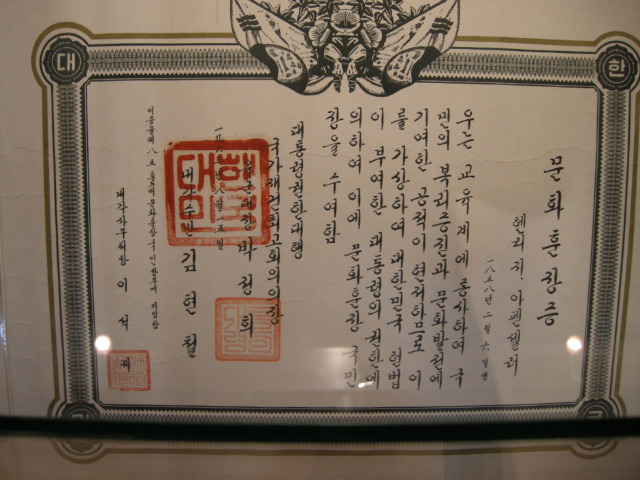 대
한
문화훈장증
헨리 지·아펜젤러
一八五八년 二월 六일생
우는 교육계에 종사하여 국
민의 복리증진과 문화발전에
기여한 공적이 현저하므로 이
를 가상하여 대한민국 헌법
이 부여한 대통령의 권한에
의하여 이에 문화훈장 국민
장을 수여함
대통령권한대행
국가재건최고회의의장
육군대장 박정희
八월 十五일
내각수반 김현철
국민장부에 기입함
내각사무처장 이석제